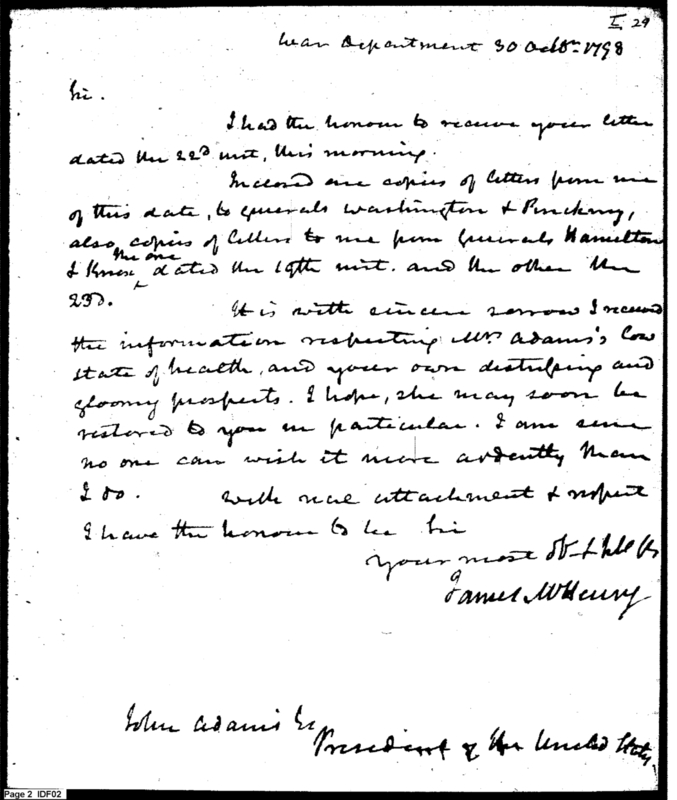 I 29
War Department 30 Octbr. 1798
Sir.
I had the honour to receive your letter
dated the 22d inst, this morning.
Inclosed are copies of letters from me
of this date, to generals Washington & Pinckney,
also copies of letters to me from generals Hamilton
the one
& Knox dated the 19th inst. and the other the
23d.
It is with sincere sorrow I received
the information respecting Mrs Adams's low
state of health, and your own distressing and
gloomy prospects. I hope, she may soon be
restored to you in particular. I am sure
no one can wish it more ardently than
I do.
With real attachment & respect
I have the honour to be Sir
your most obt &
James McHenry
John Adams Es
President of the United States.
Page 2 IDF02